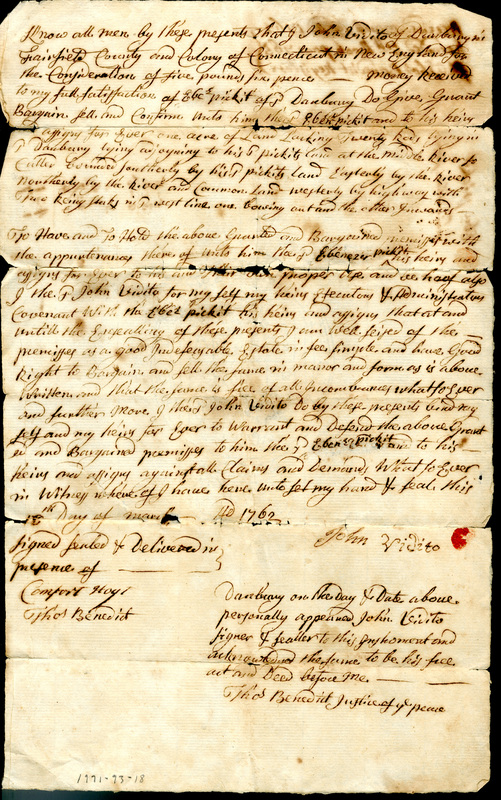 Know all men by these presents that I John Vidito of Danbury in
Fairfield County and Colony of Connecticut in New England for
the Consideration of five pounds six pence — money received
to my full Satisfaction of Ebez pickit of sd Danbury Do Give, Grant
Bargain sell and Confirm Unto him the sd Ebez pickit and to his heirs
assigns for Ever one acre of Land Lacking Twenty lying in
sd Danbury lying adjoyning to his sd pickits land at the so
Called Southerly by his sd pickits land Easterly by the River
Northerly by the River and Common Land westerly by highway with
two in sd west line one bowing out and the other Inwards
To Have and To Hold the above Granted and Bargained premises with
the appurtenances there of unto him the sd Ebenezer Pickit his heirs and
assigns for Ever to his and their own proper Use and behoof also
I the sd John Vidito for my self my heirs Executors & Administrators
Covenant With the Ebez pickit his heirs and assigns that at and
untill the Ensealing of these presents I am Well seized of the
premisses as a good Indefesable Estate in fee simple and have Good
Right to Bargain and sell the same in manor and form as is above
Written and that the same is free of all Incumbrances what so Ever
and further More I the sd John Vidito Do by these presents bind my
self and my heirs for Ever to Warrant and Defend the above Grant
ed and Bargained premisses to him the sd Ebenez pickit and to his
heirs and assigns against all Claims and Demand, What so Ever
in Witness whereof I have here unto set my hand & seal this
th Day of march AD 1762
Signed sealed & Delivered in
presence of
John Vidito
Comfort Hoyt
Thos Benedict
Danbury on the Day & Date above
personally appeared John Vidito
signer & sealer to this Instroment and
acknowledged the same to be his free
act and Deed before Me
Thos Benedict Justice of ye peace
1971-73-18